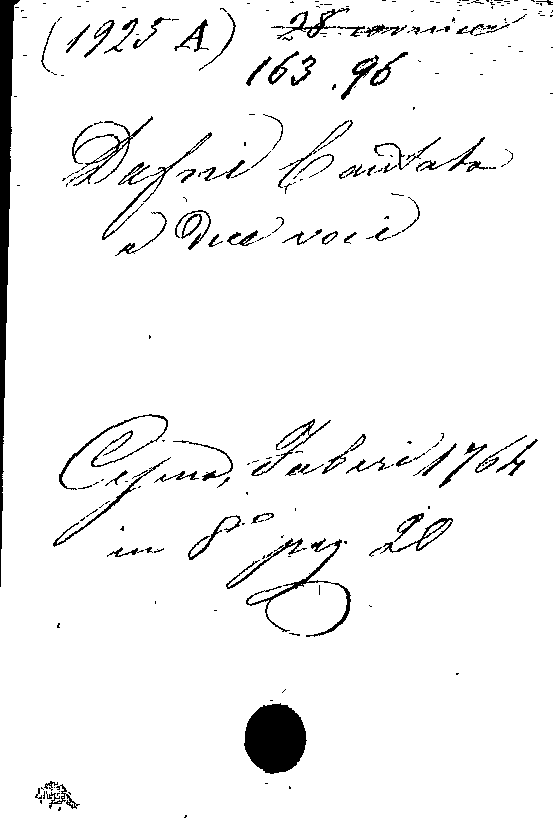 (1925 A) 28 cornice
163.96
Dafni Cantata
a due voci
Cesena, Faberi 1764
in 8º pag 20